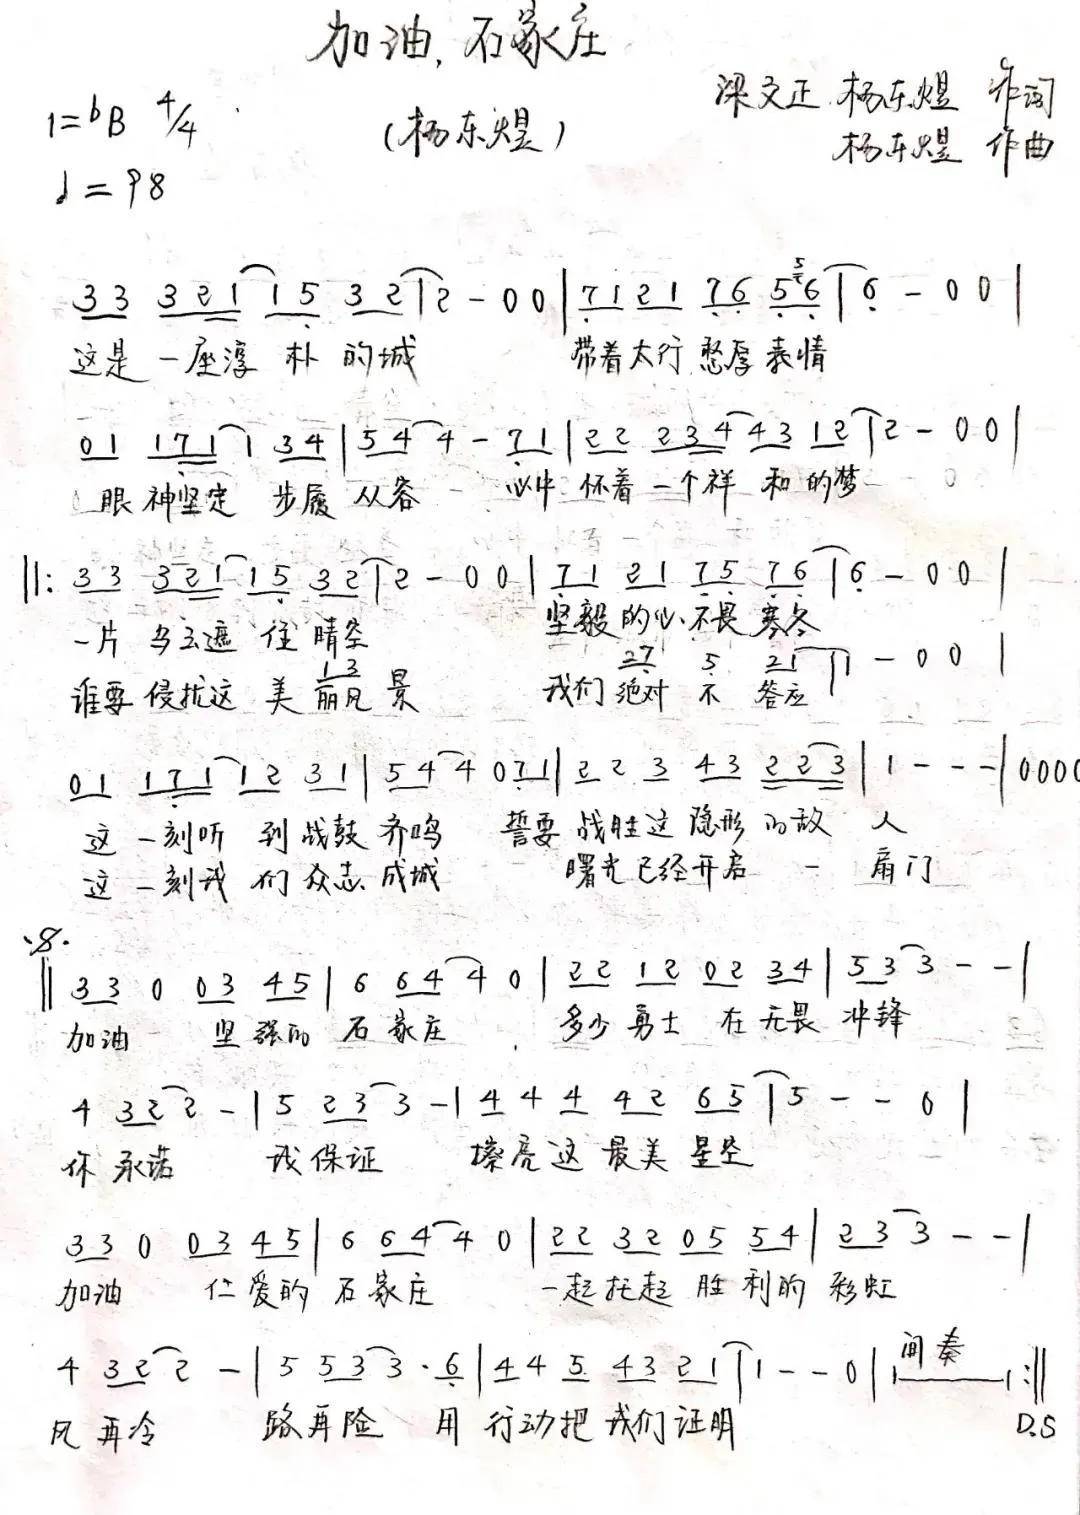 加油,石家庄
梁文正 杨东煜 作词
1=bB 4/4 (杨东煜) 杨东煜 作曲
♩=98
33 321 15 32 | 2 - 0 0 | 7121 76 56 | 6 - 0 0 |
这是 一座淳 朴 的城 带着太行 憨厚表情
01 171 1 34 | 54 4 - 71 | 22 234 43 12 | 2 - 0 0 |
眼神坚定 步履 从容 心中 怀着 一个祥 和的梦
||: 33 321 15 32 | 2 - 0 0 | 71 21 75 76 | 6 - 0 0 |
一片 乌云遮 住 晴空 坚毅的心 不畏 寒冬
13 27 5 21 | 1 - 0 0 |
谁要 侵扰这 美 丽风 景 我们 绝对 不 答应
01 171 12 31 | 54 4 071 | 22 3 43 223 | 1 - - - | 0000
这一刻听 到战鼓 齐鸣 誓要 战胜这 隐形 的敌 人
这一刻我 们众志 成城 曙光已经开启 一 扇门
𝄋
|| 33 0 03 45 | 6 64 4 0 | 22 12 02 34 | 53 3 - - |
加油 坚强的 石家庄 多少勇士 在无畏 冲锋
4 32 2 - | 5 23 3 - | 4 4 4 42 65 | 5 - - 0 |
你 承诺 我保证 擦亮这 最美 星空
33 0 03 45 | 6 64 4 0 | 22 32 05 54 | 23 3 - - |
加油 仁爱的 石家庄 一起托起 胜利的 彩虹
4 32 2 - | 5 53 3 · 6 | 44 5 43 21 | 1 - - 0 | 间奏 :||
风再冷 路再险 用 行动把 我们证明 D.S